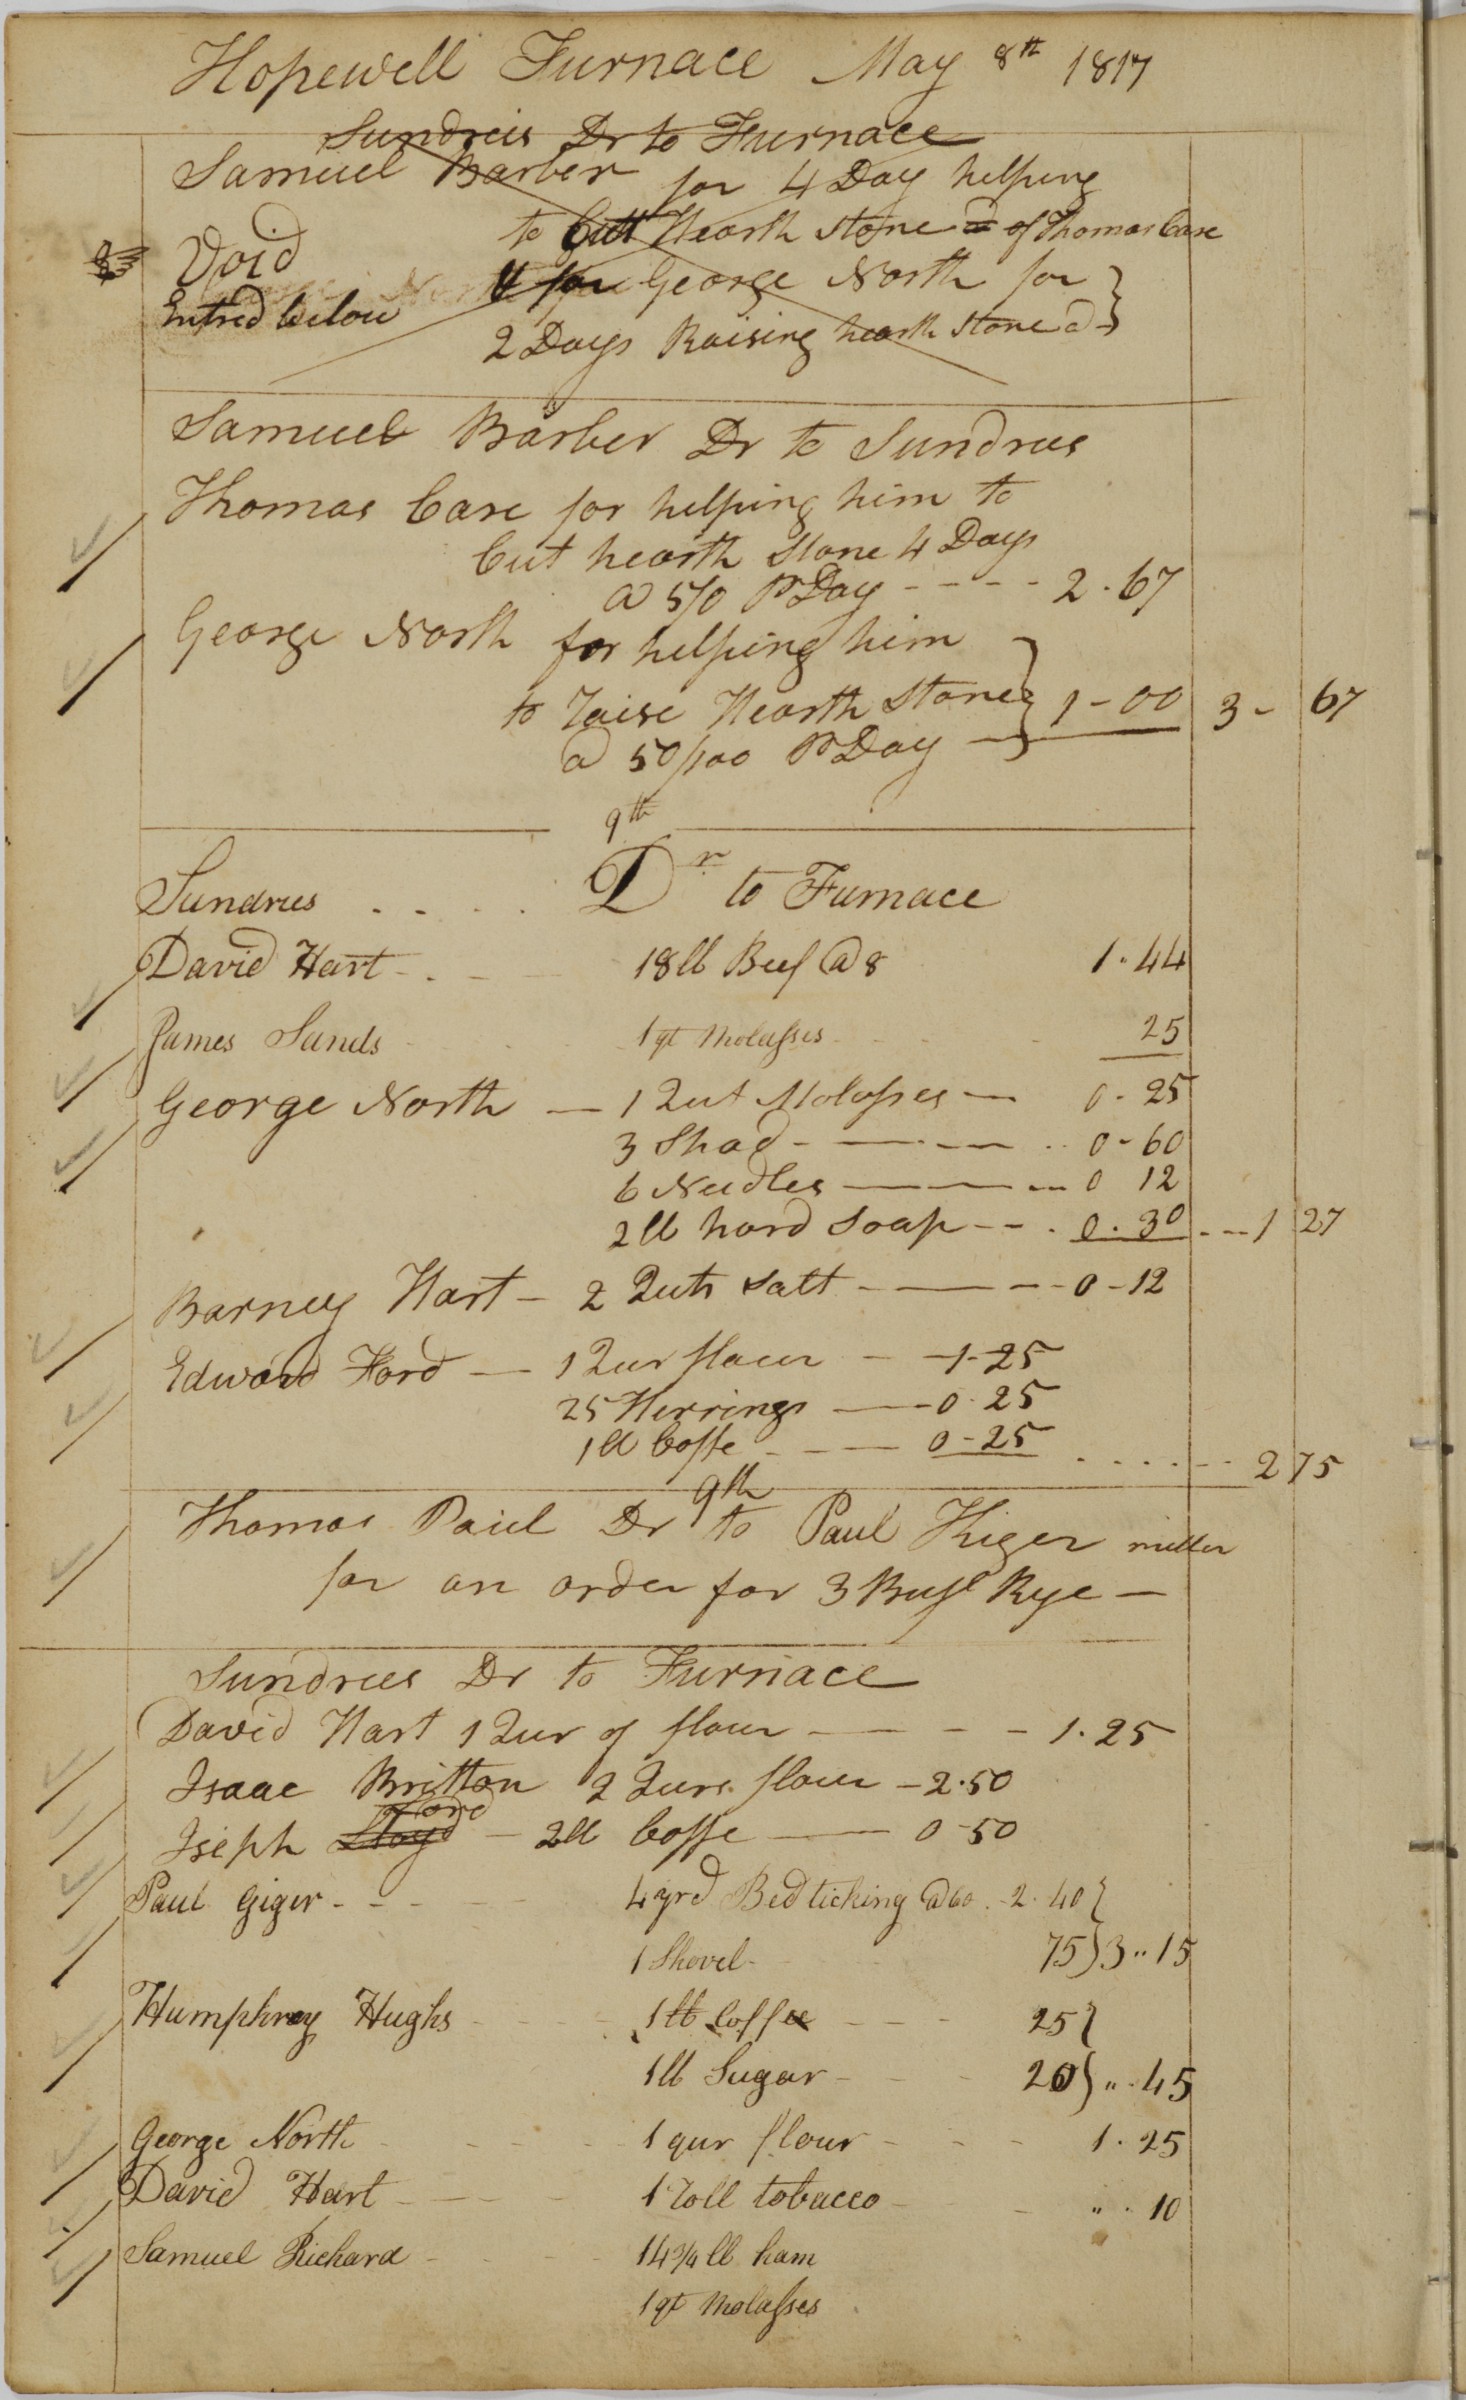 Hopewell Furnace May 8th 1817
Sundreis Dr to Furnace
Samuel Barber for 4 Day helping
to Cutt Hearth Stone @ of Thomas Care
Void
& for George North for
Entred below
2 Days Raising hearth Stone @
Samuel Barber Dr to Sundrees
Thomas Care for helping him to
Cut hearth Stone 4 Days
@ 5/0 Pr Day - - - - 2.67
George North for helping him
to raise Hearth Stone 1-00 3- 67
@ 50/100 Pr Day
9th
Sundrees . . . . Dr to Furnace
David Hart 18 lb Beef @ 8 1.44
James Sands 1 qt Molasses 25
George North — 1 Qut Molasses — 0-25
3 Shad - — — 0-60
6 Needles — — 0 12
2 lb hard Soap - - . 0.30 - - - 1 27
Barney Hart - 2 Quts Salt - — - - 0-12
Edward Ford — 1 Qur flour - -1-25
25 Herrings — 0.25
1 lb Coffe - - — 0-25 . . . . . . 2 75
9th
Thomas Paul Dr to Paul Kiger miller
for an order for 3 Bushl Rye —
Sundrees Dr to Furnace
David Hart 1 Qur of flour — - - - 1.25
Isaac Britton 2 Qurs flour - 2.50
Ford
Iseph Lloyd - 2 lb Coffe — 0-50
Paul Giger - - - 4 yrd Bed ticking @ 60 . 2.40
1 Shovel 75 3 .. 15
Humphrey Hughs 1 lb Coffee 25
1 lb Sugar 20 ,, . 45
George North 1 qur flour 1.25
David Hart 1 roll tobacco ,, . 10
Samuel Richard 14 3/4 lb ham
1 qt Molasses